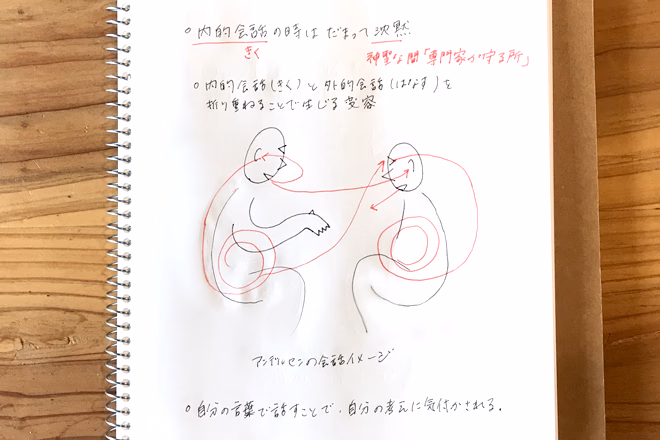 ○ 内的会話の時は だまって 沈黙
きく
神聖な間「専門家が守る所」
○ 内的会話(きく)と外的会話(はなす)を
折り重ねることで生じる変容
アンデルセンの会話イメージ
○ 自分の言葉で話すことで、自分の考えに気付かされる。